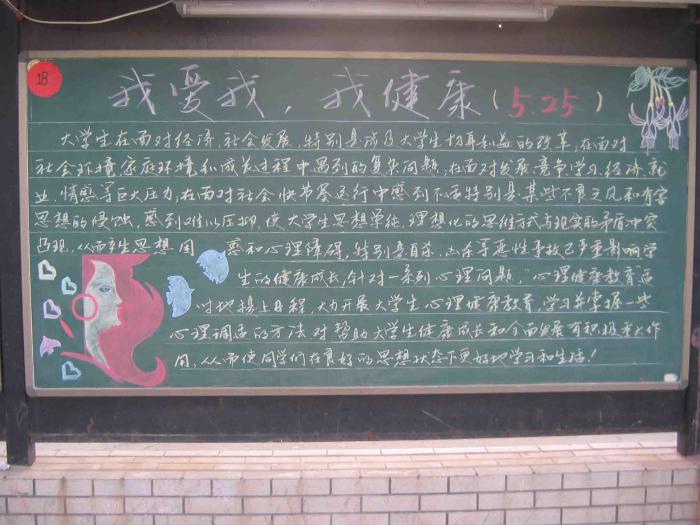 18
我爱我，我健康（5.25）
大学生在面对经济、社会发展，特别是涉及大学生切身利益的改革；在面对
社会环境、家庭环境和成长过程中遇到的复杂问题；在面对发展、竞争、学习、经济、就
业、情感等巨大压力；在面对社会快节奏运行中感到不适特别是某些不良之风和有害
思想的侵蚀，感到难以压抑，使大学生思想单纯、理想化的思维方式与现实的矛盾冲突
凸现，从而产生思想困惑和心理障碍，特别是自杀、凶杀等恶性事故已严重影响学
生的健康成长，针对一系列心理问题，"心理健康教育"适
时地提上日程，大力开展大学生心理健康教育，学习并掌握一些
心理调适的方法对帮助大学生健康成长和全面发展有积极重大作
用，从而使同学们在良好的思想状态下更好地学习和生活！